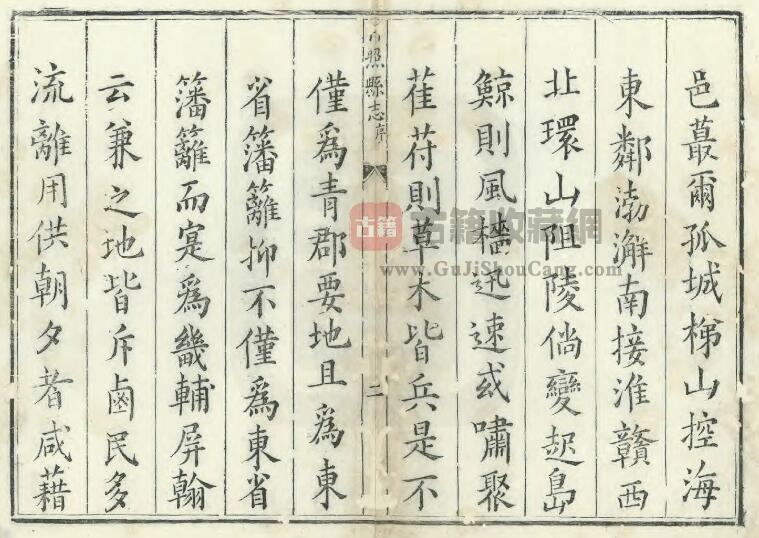 邑蕞爾孤城梯山控海
東鄰渤澥南接淮贛西
北環山阻陵倘變起島
鯨則風檣迅速或嘯聚
萑苻則草木皆兵是不
日照縣志序
二
僅為青郡要地且為東
省籓籬抑不僅為東省
籓籬而寔為畿輔屏翰
云兼之地皆斥鹵民多
流離用供朝夕者咸藉
古籍
古籍收藏網
www.GuJiShouCang.com